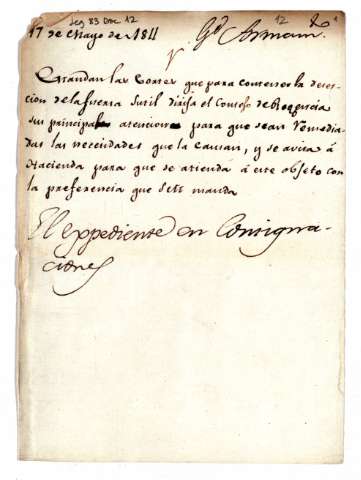 Leg 83 Doc 12
12
17 de Mayo de 1811
Mandan las Cortes que para contener la deser-
cion de la fuerza Sutil dirija el Consejo de Regencia
sus principales atenciones para que sean remedia-
das las necesidades que la Causan, y se avisa á
Hacienda para que se atienda á este objeto con
la preferencia que se manda
El expediente en Consigna-
ciones